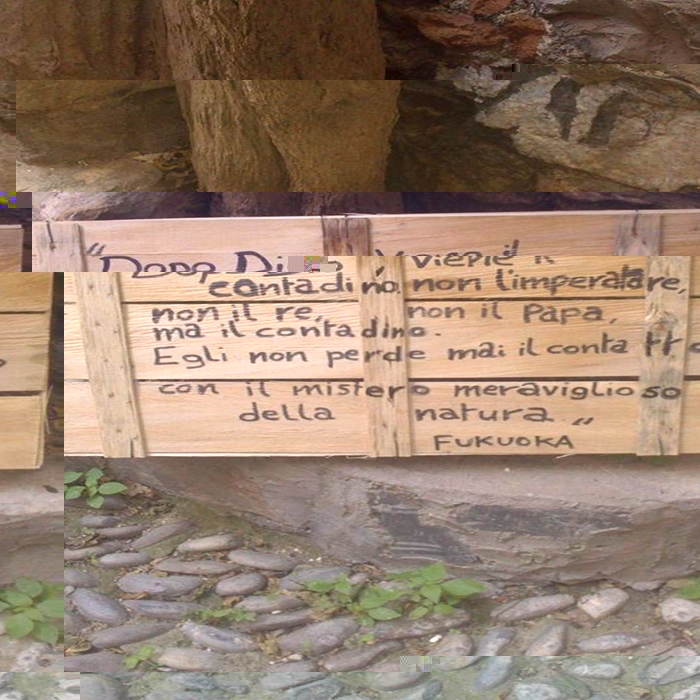 "Dopo Dio, viene il
contadino, non l'imperatore,
non il re, non il Papa,
ma il contadino.
Egli non perde mai il contatto
con il mistero meraviglioso
della natura"
FUKUOKA